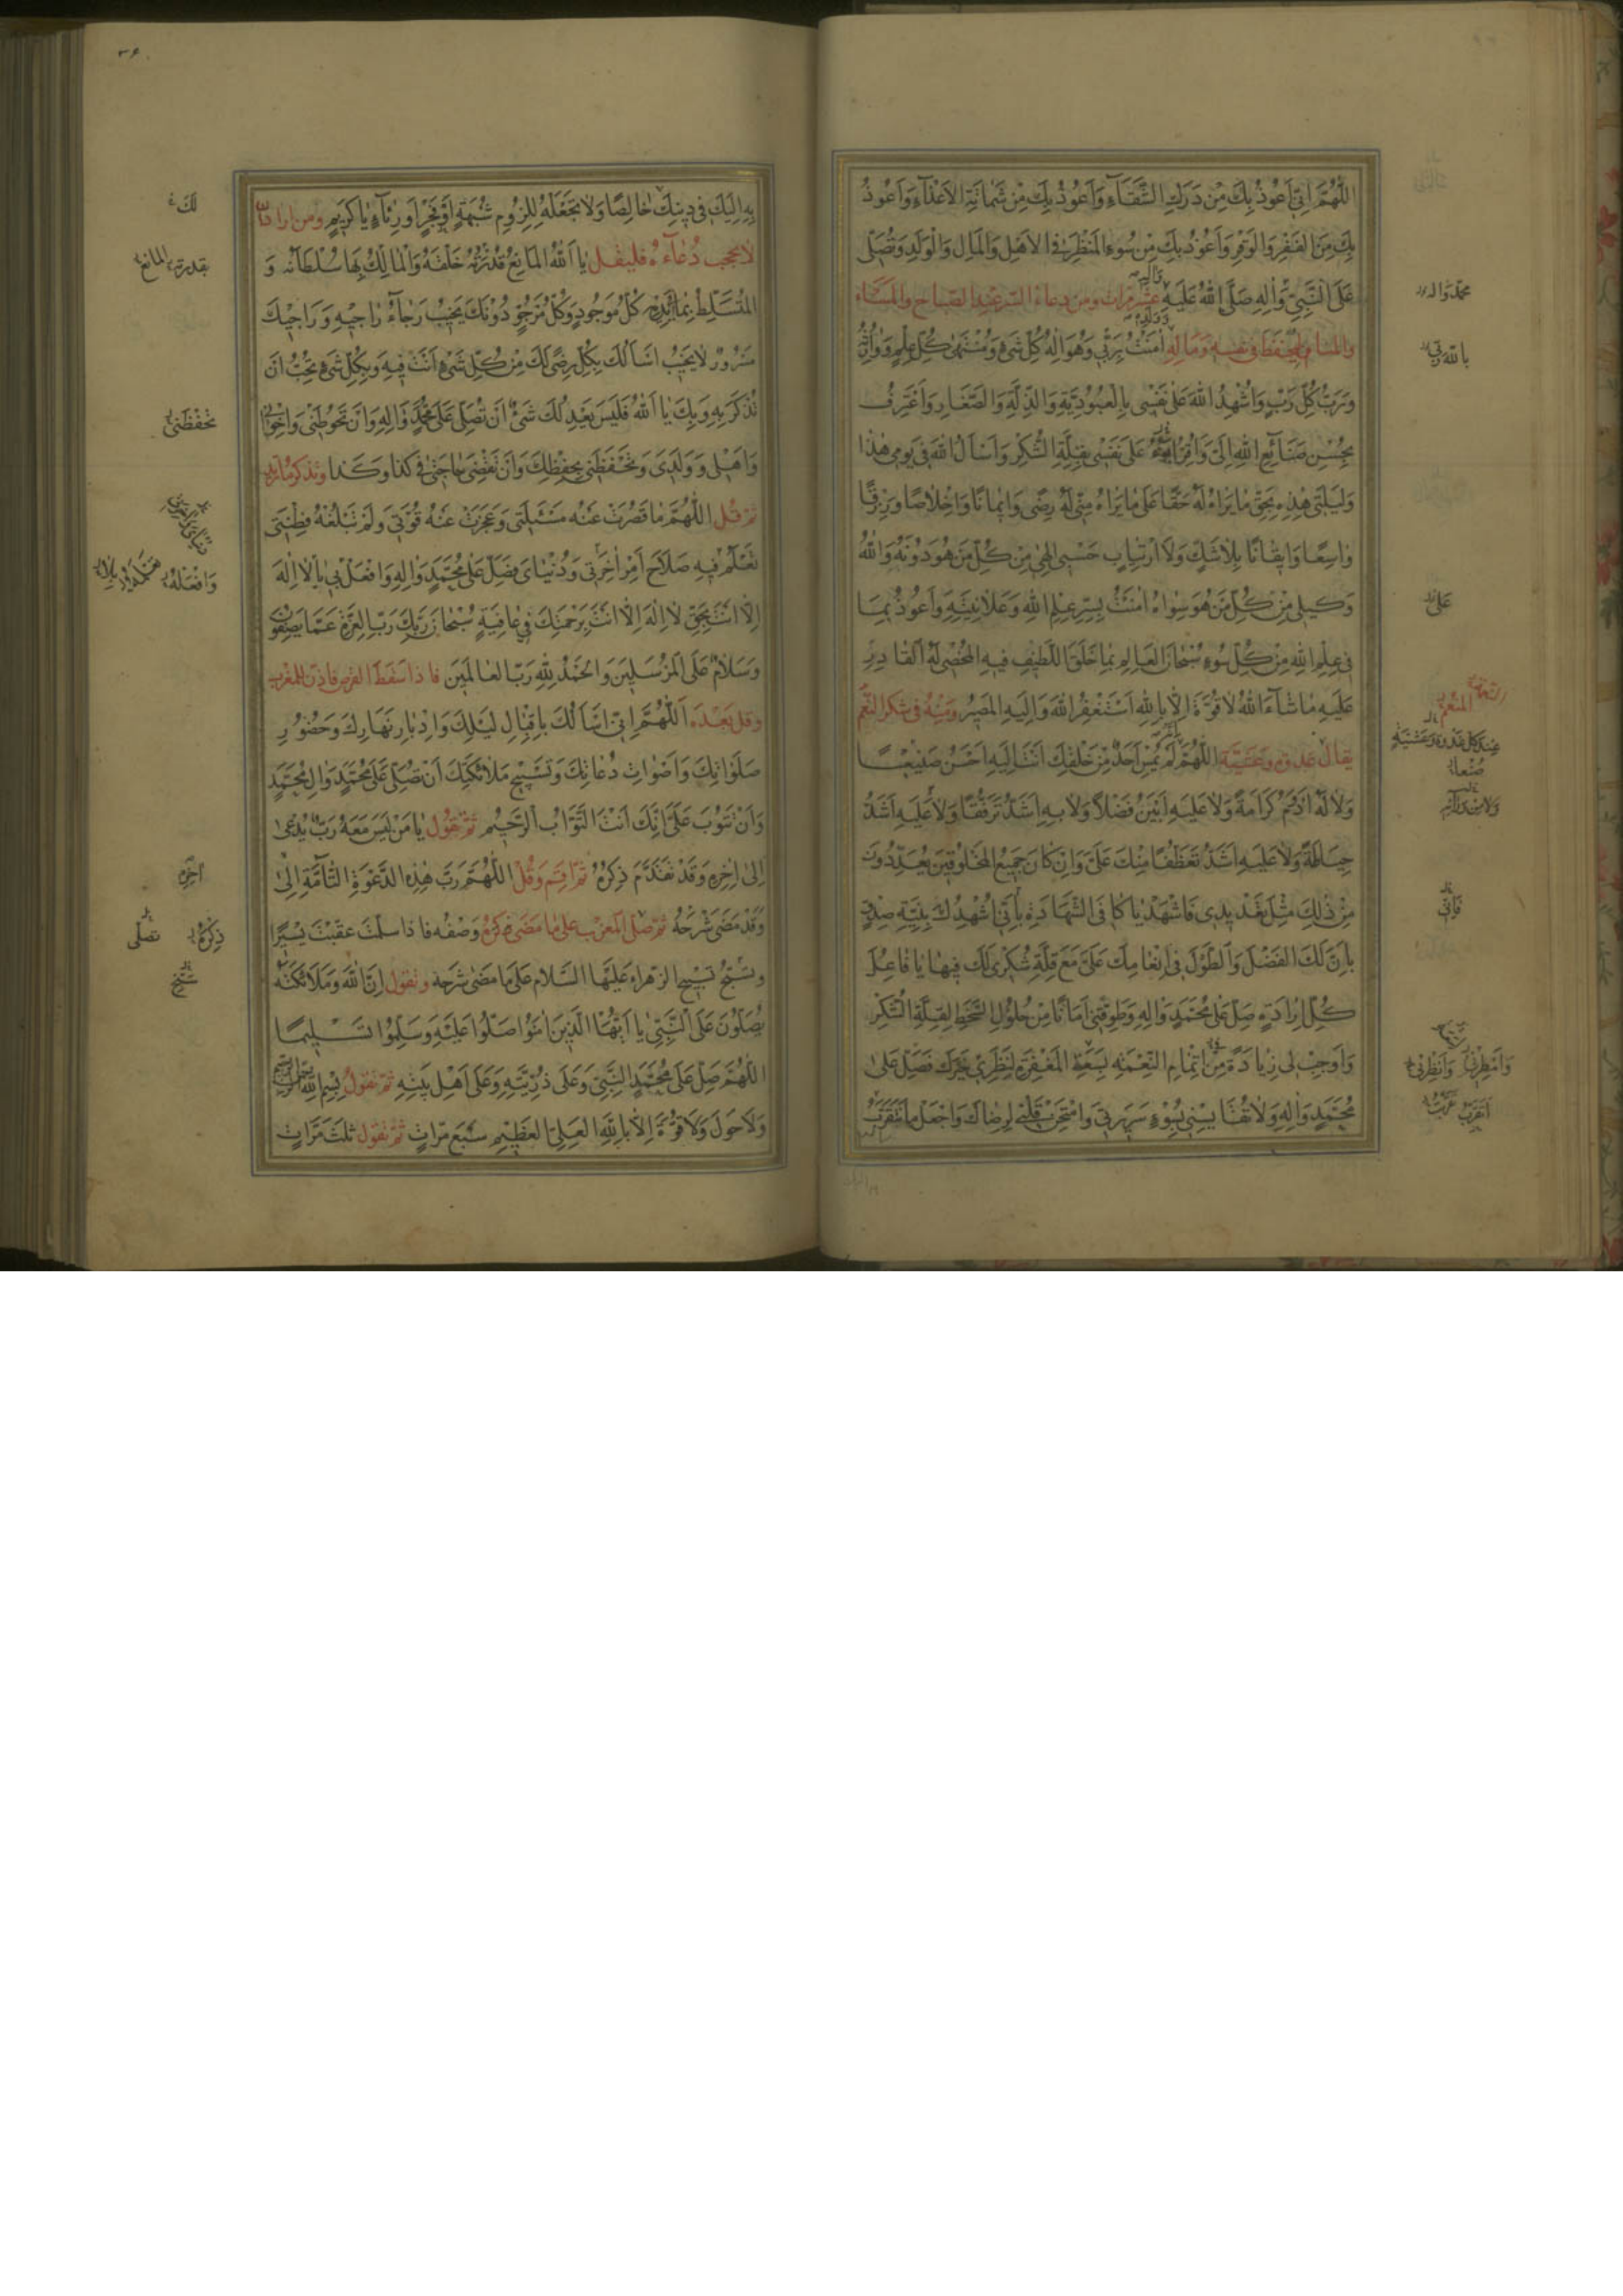 اللّٰهُمَّ اِنّي اَعُوذُ بِكَ مِنْ دَرَكِ الشَّقَآءِ وَاَعُوذُ بِكَ مِنْ شَمَاتَةِ الْاَعْدَآءِ وَاَعُوذُ
بِكَ مِنَ الْفَقْرِ وَالْوَقْرِ وَاَعُوذُ بِكَ مِنْ سُوءِ الْمَنْظَرِ فِي الْاَهْلِ وَالْمَالِ وَالْوَلَدِ وَتُصَلّى
عَلَى النَّبِيِّ وَاٰلِهِ صَلَّى اللهُ عَلَيْهِ وَاٰلِهِ عشر مرات ومن دعاء السر عند الصباح والمساء
والمنام ليحفظ في نفسه وماله اٰمَنْتُ بِرَبّي وَهُوَ اِلٰهُ كُلِّ شَيْءٍ وَمُنْتَهٰى كُلِّ عِلْمٍ وَوَارِثُهُ
وَرَبُّ كُلِّ رَبٍّ وَاُشْهِدُ اللهَ عَلٰى نَفْسي بِالْعُبُودِيَّةِ وَالذِّلَّةِ وَالصَّغَارِ وَاَعْتَرِفُ
بِحُسْنِ صَنَائِعِ اللهِ اِلَيَّ وَاَبُوءُ عَلٰى نَفْسي بِقِلَّةِ الشُّكْرِ وَاَسْاَلُ اللهَ في يَوْمي هٰذَا
وَلَيْلَتي هٰذِهِ بِحَقِّ مَا يَرَاهُ لَهُ حَقًّا عَلٰى مَا يَرَاهُ مِنّي لَهُ رِضًى وَايمَانًا وَاِخْلَاصًا وَرِزْقًا
وَاسِعًا وَايقَانًا بِلَا شَكٍّ وَلَا ارْتِيَابٍ حَسْبي اِلٰهي مِنْ كُلِّ مَنْ هُوَ دُونَهُ وَاللهُ
وَكيلي مِنْ كُلِّ مَنْ هُوَ سِوَاهُ اٰمَنْتُ بِسِرِّ عِلْمِ اللهِ وَعَلَانِيَتِهِ وَاَعُوذُ بِمَا
في عِلْمِ اللهِ مِنْ كُلِّ سُوءٍ سُبْحَانَ الْعَالِمِ بِمَا خَلَقَ اللَّطيفِ فيهِ الْمُحْصي لَهُ الْقَادِرِ
عَلَيْهِ مَا شَآءَ اللهُ لَا قُوَّةَ اِلَّا بِاللهِ اَسْتَغْفِرُ اللهَ وَاِلَيْهِ الْمَصيرُ ومنه في شكر النعم
يقال غدوة وعشية اللّٰهُمَّ لَمْ يُمْسِ اَحَدٌ مِنْ خَلْقِكَ اَنْتَ اِلَيْهِ اَحْسَنُ صَنيعًا
وَلَا لَهُ اَدْوَمُ كَرَامَةً وَلَا عَلَيْهِ اَبْيَنُ فَضْلًا وَلَا بِهِ اَشَدُّ تَرَفُّقًا وَلَا عَلَيْهِ اَشَدُّ
حِيَاطَةً وَلَا عَلَيْهِ اَشَدُّ تَعَطُّفًا مِنْكَ عَلَيَّ وَاِنْ كَانَ جَميعُ الْمَخْلُوقينَ يُعَدِّدُونَ
مِنْ ذٰلِكَ مِثْلَ تَعْديدي فَاشْهَدْ يَا كَافِيَ الشَّهَادَةِ بِاَنّي اُشْهِدُكَ بِنِيَّةِ صِدْقٍ
بِاَنَّ لَكَ الْفَضْلَ وَالطَّوْلَ في اِنْعَامِكَ عَلَيَّ مَعَ قِلَّةِ شُكْري لَكَ فيهَا يَا فَاعِلَ
كُلِّ اِرَادَةٍ صَلِّ عَلٰى مُحَمَّدٍ وَاٰلِهِ وَطَوِّقْني اَمَانًا مِنْ حُلُولِ السَّخَطِ لِقِلَّةِ الشُّكْرِ
وَاَوْجِبْ لي زِيَادَةً مِنْ اِتْمَامِ النِّعْمَةِ بِسَعَةِ الْمَغْفِرَةِ فَصَلِّ عَلٰى
مُحَمَّدٍ وَاٰلِهِ وَلَا تُقَايِسْني بِسُوءِ سَريرَتي وَامْتَحِنْ قَلْبي لِرِضَاكَ وَاجْعَلْ مَا تَقَرَّبْتُ
محمد واله
بالله ربي
على
النعم المنعم
عند كل غدوة وعشية
صنعا
فاني
بِهِ اِلَيْكَ في دينِكَ خَالِصًا وَلَا تَجْعَلْهُ لِلُزُومِ شُبْهَةٍ اَوْ فَخْرٍ اَوْ رِئَآءٍ يَا كَريمُ ومن اراد ان
لا يحجب دعاءه فليقل يَا اَللهُ الْمَانِعُ قُدْرَتُهُ خَلْقَهُ وَالْمَالِكُ بِهَا سُلْطَانَهُ وَ
الْمُتَسَلِّطُ بِمَا في يَدَيْهِ كُلُّ مَوْجُودٍ وَكُلُّ مَرْجُوٍّ دُونَكَ يَخيبُ رَجَآءُ رَاجيهِ وَرَاجيكَ
مَسْرُورٌ لَا يَخيبُ اَسْاَلُكَ بِكُلِّ رِضًى لَكَ مِنْ كُلِّ شَيْءٍ اَنْتَ فيهِ وَبِكُلِّ شَيْءٍ تُحِبُّ اَنْ
تُذْكَرَ بِهِ وَبِكَ يَا اَللهُ فَلَيْسَ يَعْدِلُكَ شَيْءٌ اَنْ تُصَلِّيَ عَلٰى مُحَمَّدٍ وَاٰلِهِ وَاَنْ تَحُوطَني وَاِخْوَاني
وَاَهْلي وَوَلَدي وَتَحْفَظَني بِحِفْظِكَ وَاَنْ تَقْضِيَ حَاجَتي في كَذَا وَكَذَا وتذكر ما تريد
ثم قل اللّٰهُمَّ مَا قَصُرَتْ عَنْهُ مَسْئَلَتي وَعَجَزَتْ عَنْهُ قُوَّتي وَلَمْ تَبْلُغْهُ فِطْنَتي
تَعْلَمُ فيهِ صَلَاحَ اَمْرِ اٰخِرَتي وَدُنْيَايَ فَصَلِّ عَلٰى مُحَمَّدٍ وَاٰلِهِ وَافْعَلْ بي يَا لَا اِلٰهَ
اِلَّا اَنْتَ بِحَقِّ لَا اِلٰهَ اِلَّا اَنْتَ بِرَحْمَتِكَ في عَافِيَةٍ سُبْحَانَ رَبِّكَ رَبِّ الْعِزَّةِ عَمَّا يَصِفُونَ
وَسَلَامٌ عَلَى الْمُرْسَلينَ وَالْحَمْدُ لِلّٰهِ رَبِّ الْعَالَمينَ فاذا سقط القرص فاذن للمغرب
وقل بعده اَللّٰهُمَّ اِنّي اَسْاَلُكَ بِاِقْبَالِ لَيْلِكَ وَاِدْبَارِ نَهَارِكَ وَحُضُورِ
صَلَوَاتِكَ وَاَصْوَاتِ دُعَاتِكَ وَتَسْبيحِ مَلَائِكَتِكَ اَنْ تُصَلِّيَ عَلٰى مُحَمَّدٍ وَاٰلِ مُحَمَّدٍ
وَاَنْ تَتُوبَ عَلَيَّ اِنَّكَ اَنْتَ التَّوَّابُ الرَّحيمُ ثم تقول يَا مَنْ لَيْسَ مَعَهُ رَبٌّ يُدْعٰى
اِلٰى اٰخِرِهِ وَقَدْ تَقَدَّمَ ذِكْرُهُ ثم اقم وقل اللّٰهُمَّ رَبَّ هٰذِهِ الدَّعْوَةِ التَّامَّةِ اِلٰى
وَقَدْ مَضٰى شَرْحُهُ ثم صل المغرب على ما مضى ذكره وَصْفُه فاذا سلمت عقبت يسيرا
وتسبح تسبيح الزهراء عليها السلام على ما مضى شرحه وتقول اِنَّ اللهَ وَمَلَائِكَتَهُ
يُصَلُّونَ عَلَى النَّبِيِّ يَا اَيُّهَا الَّذينَ اٰمَنُوا صَلُّوا عَلَيْهِ وَسَلِّمُوا تَسْليمًا
اللّٰهُمَّ صَلِّ عَلٰى مُحَمَّدٍ النَّبِيِّ وَعَلٰى ذُرِّيَّتِهِ وَعَلٰى اَهْلِ بَيْتِهِ ثم تقول بِسْمِ اللهِ الرَّحْمٰنِ الرَّحيمِ
وَلَا حَوْلَ وَلَا قُوَّةَ اِلَّا بِاللهِ الْعَلِيِّ الْعَظيمِ سَبْعَ مَرَّاتٍ ثم تقول ثَلٰثَ مَرَّاتٍ
لك
بقدرته المانع
تحفظني
وافعله
آخره
ذكره
تصلى
تسبح